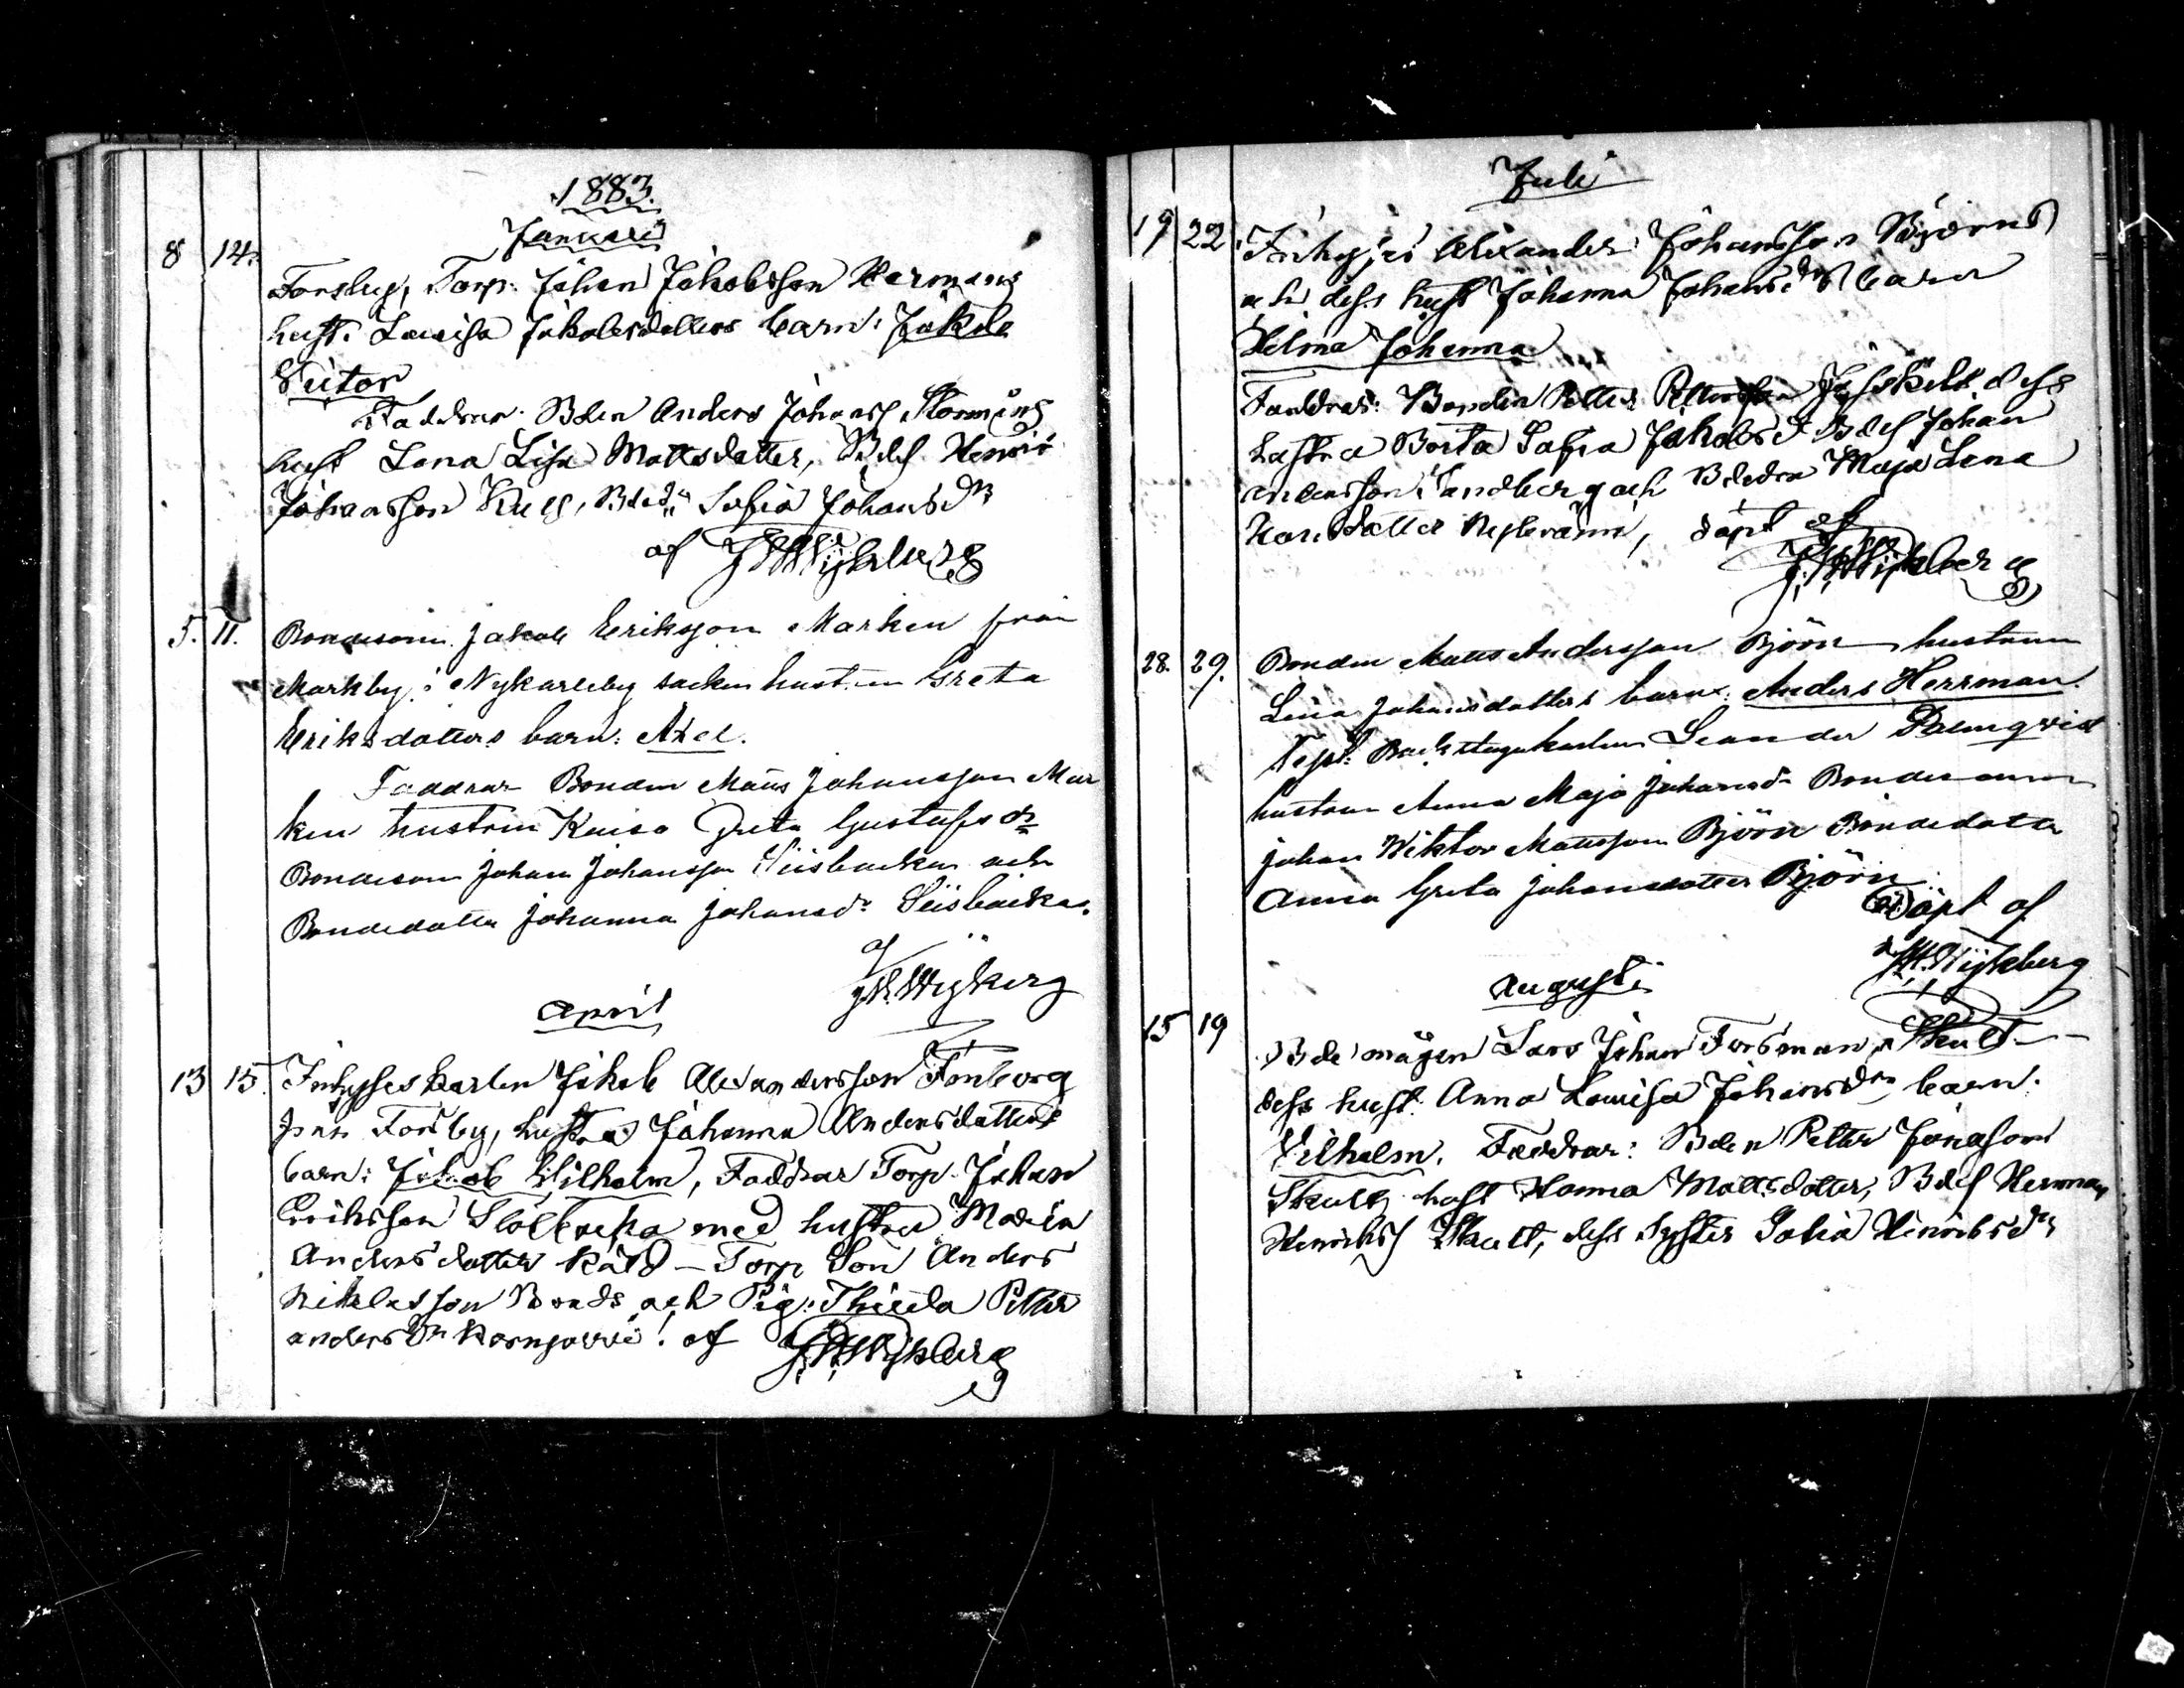 1883.
Januari
8 14. Forsby, Torp. Johan Jakobsson Hermans
hust. Lovisa Jakobsdotters barn: Jakob
Victor
Faddrar. Bden Anders Johanss Storming
hust Lena Lisa Mattsdotter, Bdes Henrik
Johansson Kull, Bded. Sofia Johansdr
af J W Wijkberg
5. 11. Bondesonen Jakob Eriksson Marken från
Markby i Nykarleby socken hustrun Greta
Eriksdotters barn: Axel.
Faddrar Bonden Matts Johansson Mar
ken hustrun Kaisa Greta Gustafsdr
Bondeson Johan Johansson och
Bondedotter Johanna Johansdr
af J W Wijkberg
April
13 15. Inhysseskarlen Jakob Alexandersson Fonborg
från Forsby, hustrus Johanna Andersdotters
barn: Jakob Wilhelm, Faddrar Torp. Johan
Eriksson med hustru Maria
Andersdotter Råld – Torp Son Anders
Niklasson Bonds och Pig. Thilda Petter
andersdr Kornjärvi. af J W Wijkberg
Juli
19 22 Inhyses Alexander Johansson Björns
och dess hust Johanna Johansdrs barn
Helma Johanna
Faddrar: Bonden Petter Pettersson dess
hustru Brita Sofia Jakobsd Bdes Johan
Andersson Sandberg och Bdedra Maja Lena
Karlsdotter döpt af
J. W. Wijkberg
28. 29. Bonden Matts Andersson Björn hustrun
Lena Johansdotters barn: Anders Herrman.
Test. Backstugukarlen Leander Palmqvist
hustrun Anna Maja Johansdr Bondesonen
Johan Wiktor Mattsson Björn Bondedotter
Anna Greta Johansdotter Björn
Döpt af
J. W. Wijkberg
Augusti
15 19 Bdemågen Lars Johan Forsman Skult
dess hust. Anna Lovisa Johansdrs barn.
Vilhelm. Faddrar: Bden Petter Jonasson
Skult hust Hanna Mattsdotter, Bdes Herrman
Henriks Skult, dess syster Sofia Henriksdr